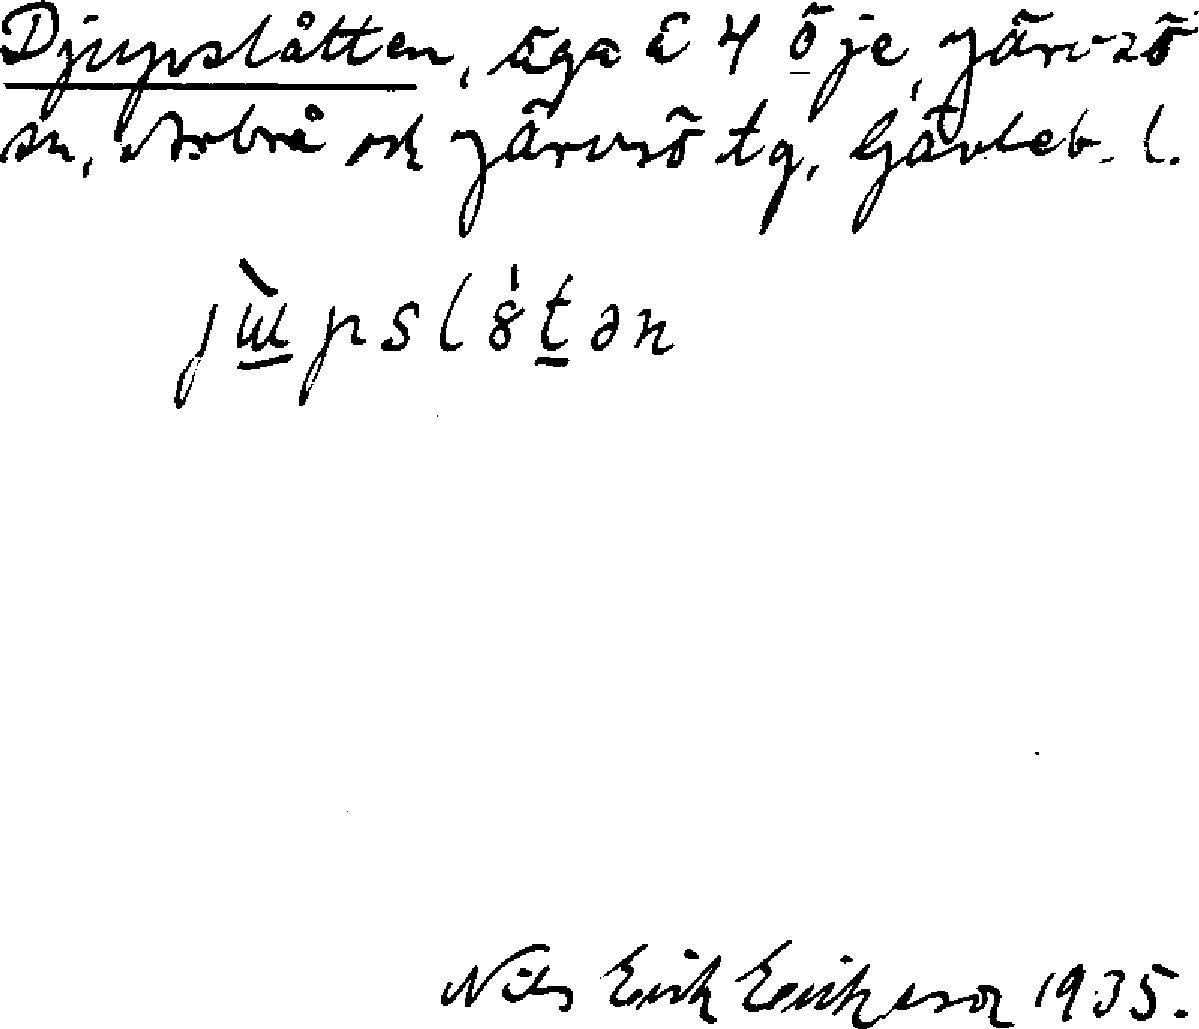 Djupslåtten, äga å 4 Öje, Järvsö
sn, Arbrå och Järvsö tg, Gävleb. l.
jɯ̀pslo̍tən
Nils Erik Erikeson 1935.